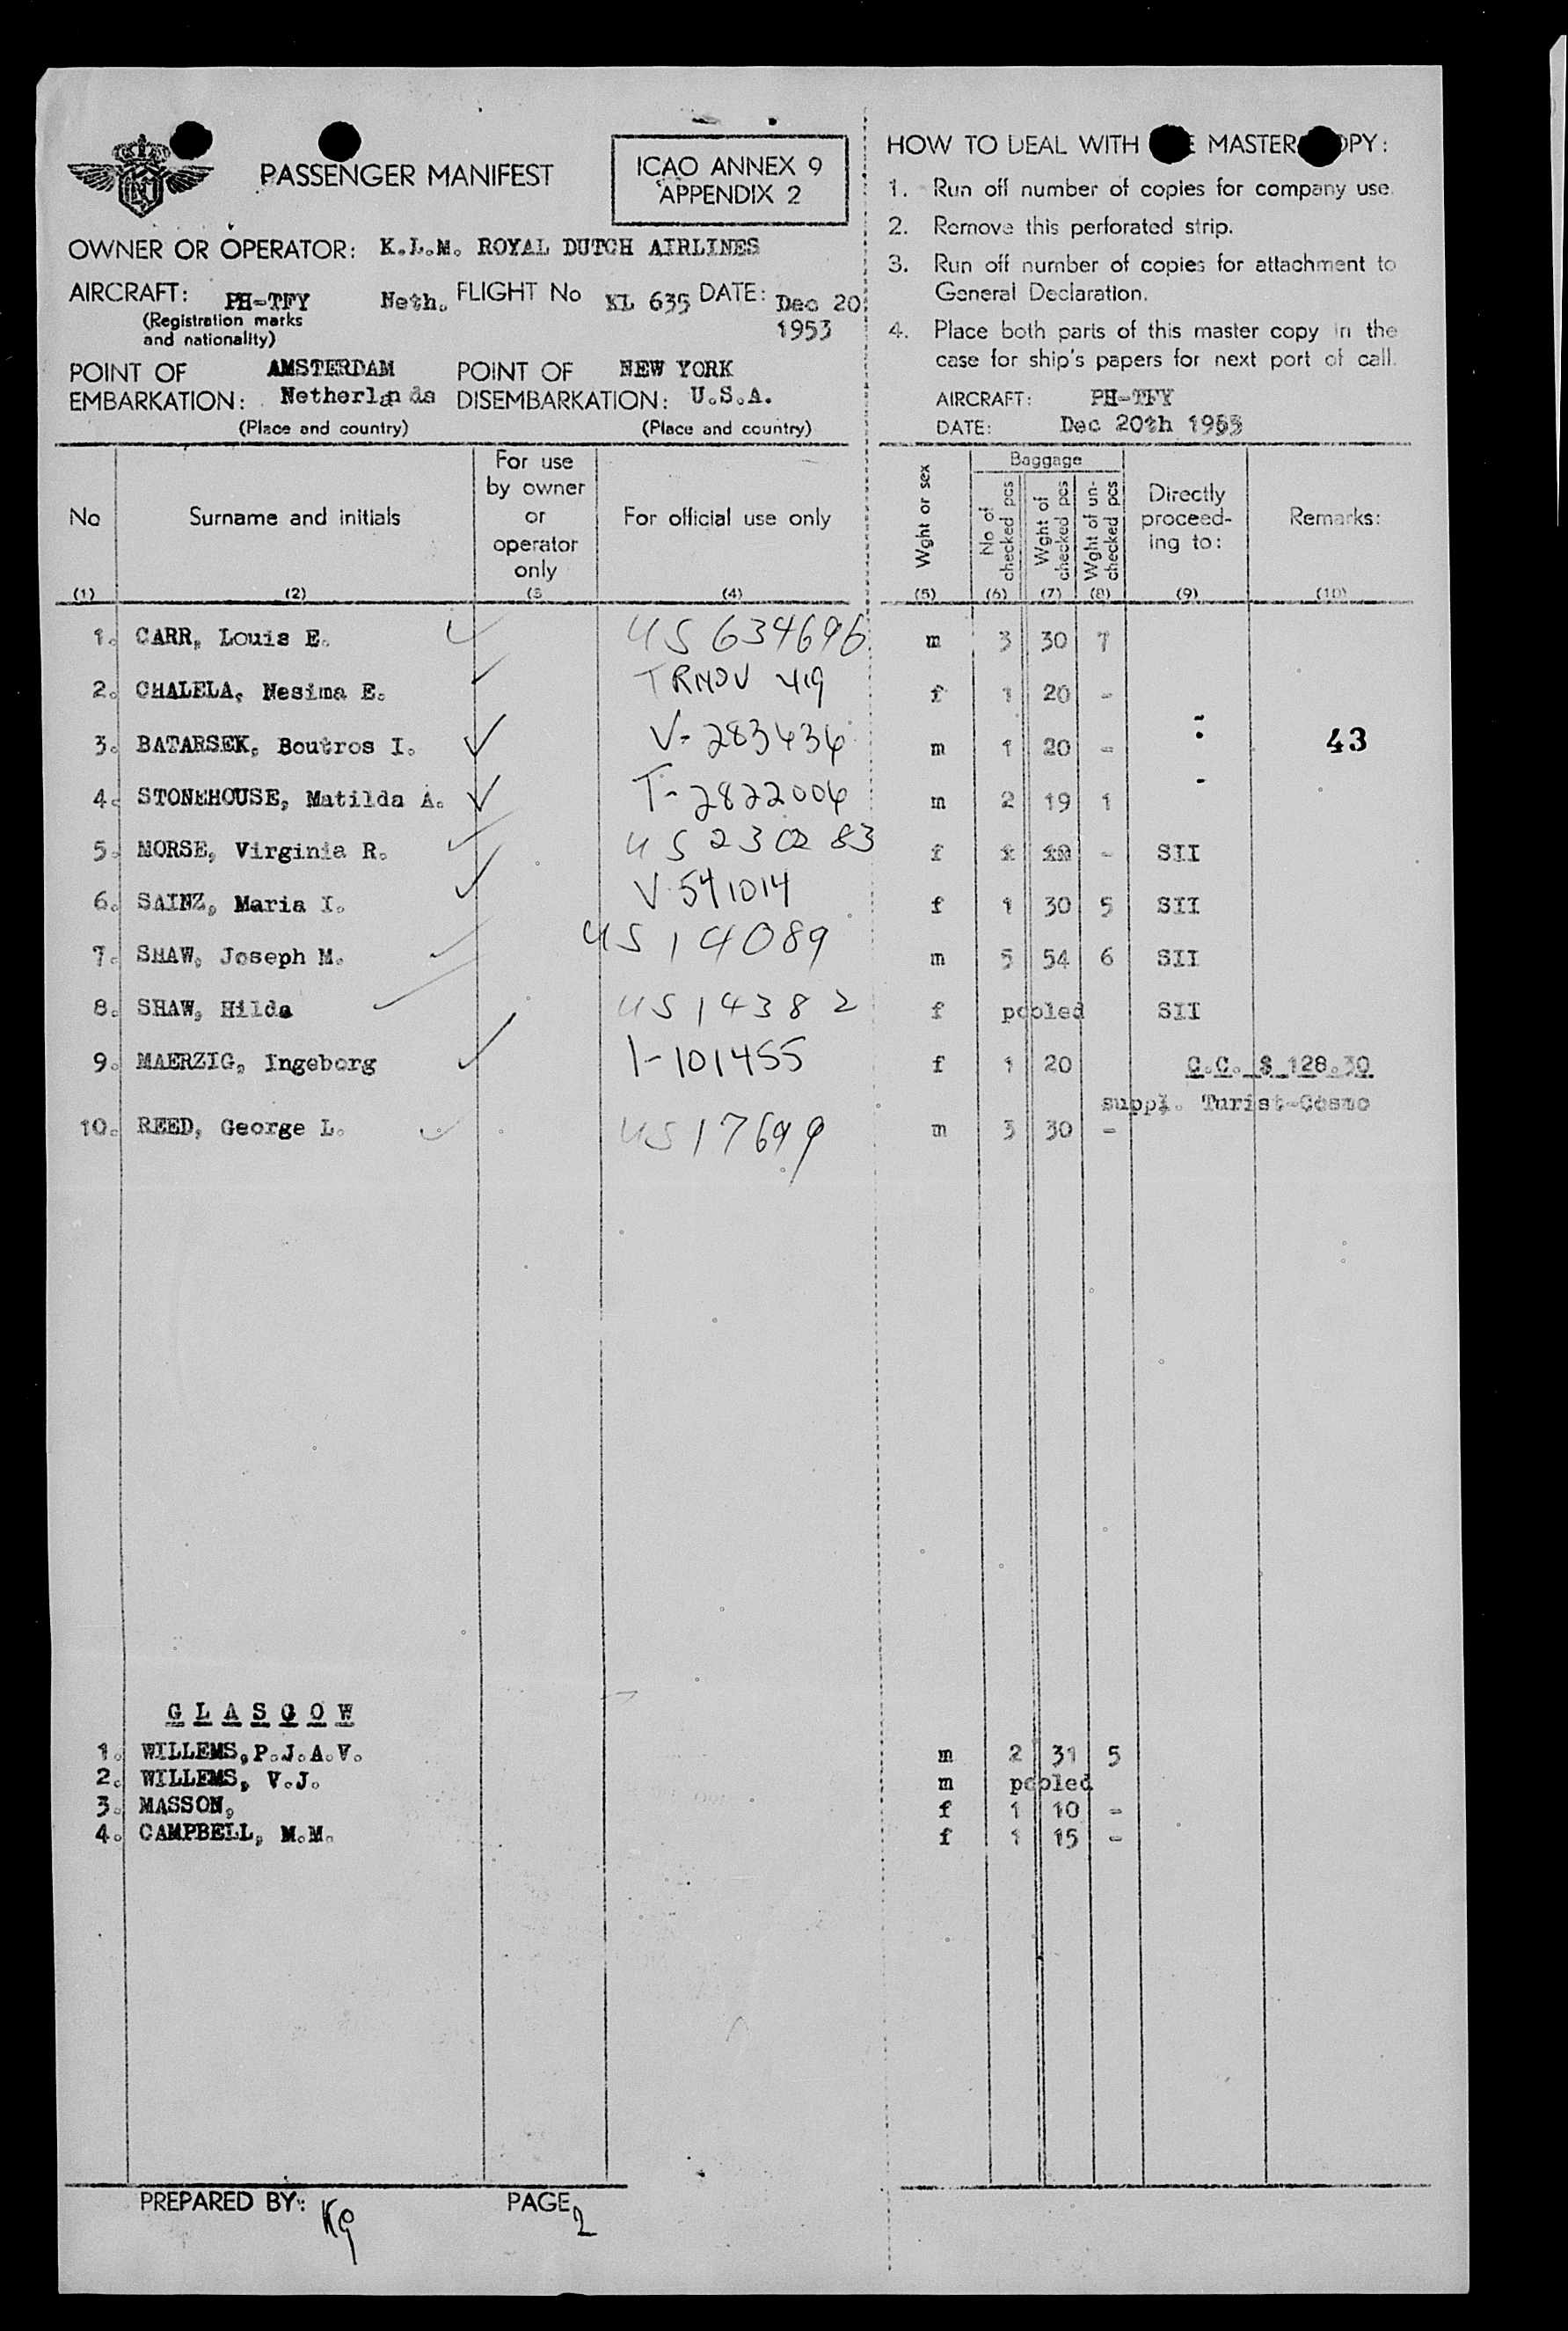 PASSENGER MANIFEST
ICAO ANNEX 9
APPENDIX 2
OWNER OR OPERATOR: K.L.M. ROYAL DUTCH AIRLINES
AIRCRAFT: PH-TFY Neth. FLIGHT No KL 635 DATE: Dec 20
1953
(Registration marks
and nationality)
POINT OF EMBARKATION: AMSTERDAM Netherlands
(Place and country)
POINT OF DISEMBARKATION: NEW YORK U.S.A.
(Place and country)
HOW TO DEAL WITH MASTER OPY:
1. Run off number of copies for company use.
2. Remove this perforated strip.
3. Run off number of copies for attachment to
General Declaration.
4. Place both parts of this master copy in the
case for ship's papers for next port of call.
AIRCRAFT: PH-TFY
DATE: Dec 20th 1953
No (1)
Surname and initials (2)
For use by owner or operator only (3
For official use only (4)
Wght or sex (5)
Baggage
No of checked pcs (6)
Wght of checked pcs (7)
Wght of un-checked pcs (8)
Directly proceed-ing to: (9)
Remarks: (10)
1. CARR, Louis E. US 634696 m 3 30 7
2. CHALELA, Nesima E. 419 f 1 20 -
3. BATARSEK, Boutros I. V-283434 m 1 20 - 43
4. STONEHOUSE, Matilda A. T-2822004 m 2 19 1
5. MORSE, Virginia R. US 230283 f - SII
6. SAINZ, Maria I. V-541014 f 1 30 5 SII
7. SHAW, Joseph M. US 14089 m 5 54 6 SII
8. SHAW, Hilda US 14382 f pooled SII
9. MAERZIG, Ingeborg I-101455 f 1 20 C.C. $ 128.30
suppl. Turist-Cosmo
10. REED, George L. US 17699 m 3 30 -
GLASGOW
1. WILLEMS, P.J.A.V. m 2 31 5
2. WILLEMS, V.J. m pooled
3. MASSON, f 1 10 -
4. CAMPBELL, M.M. f 1 15 -
PREPARED BY: KG PAGE 2